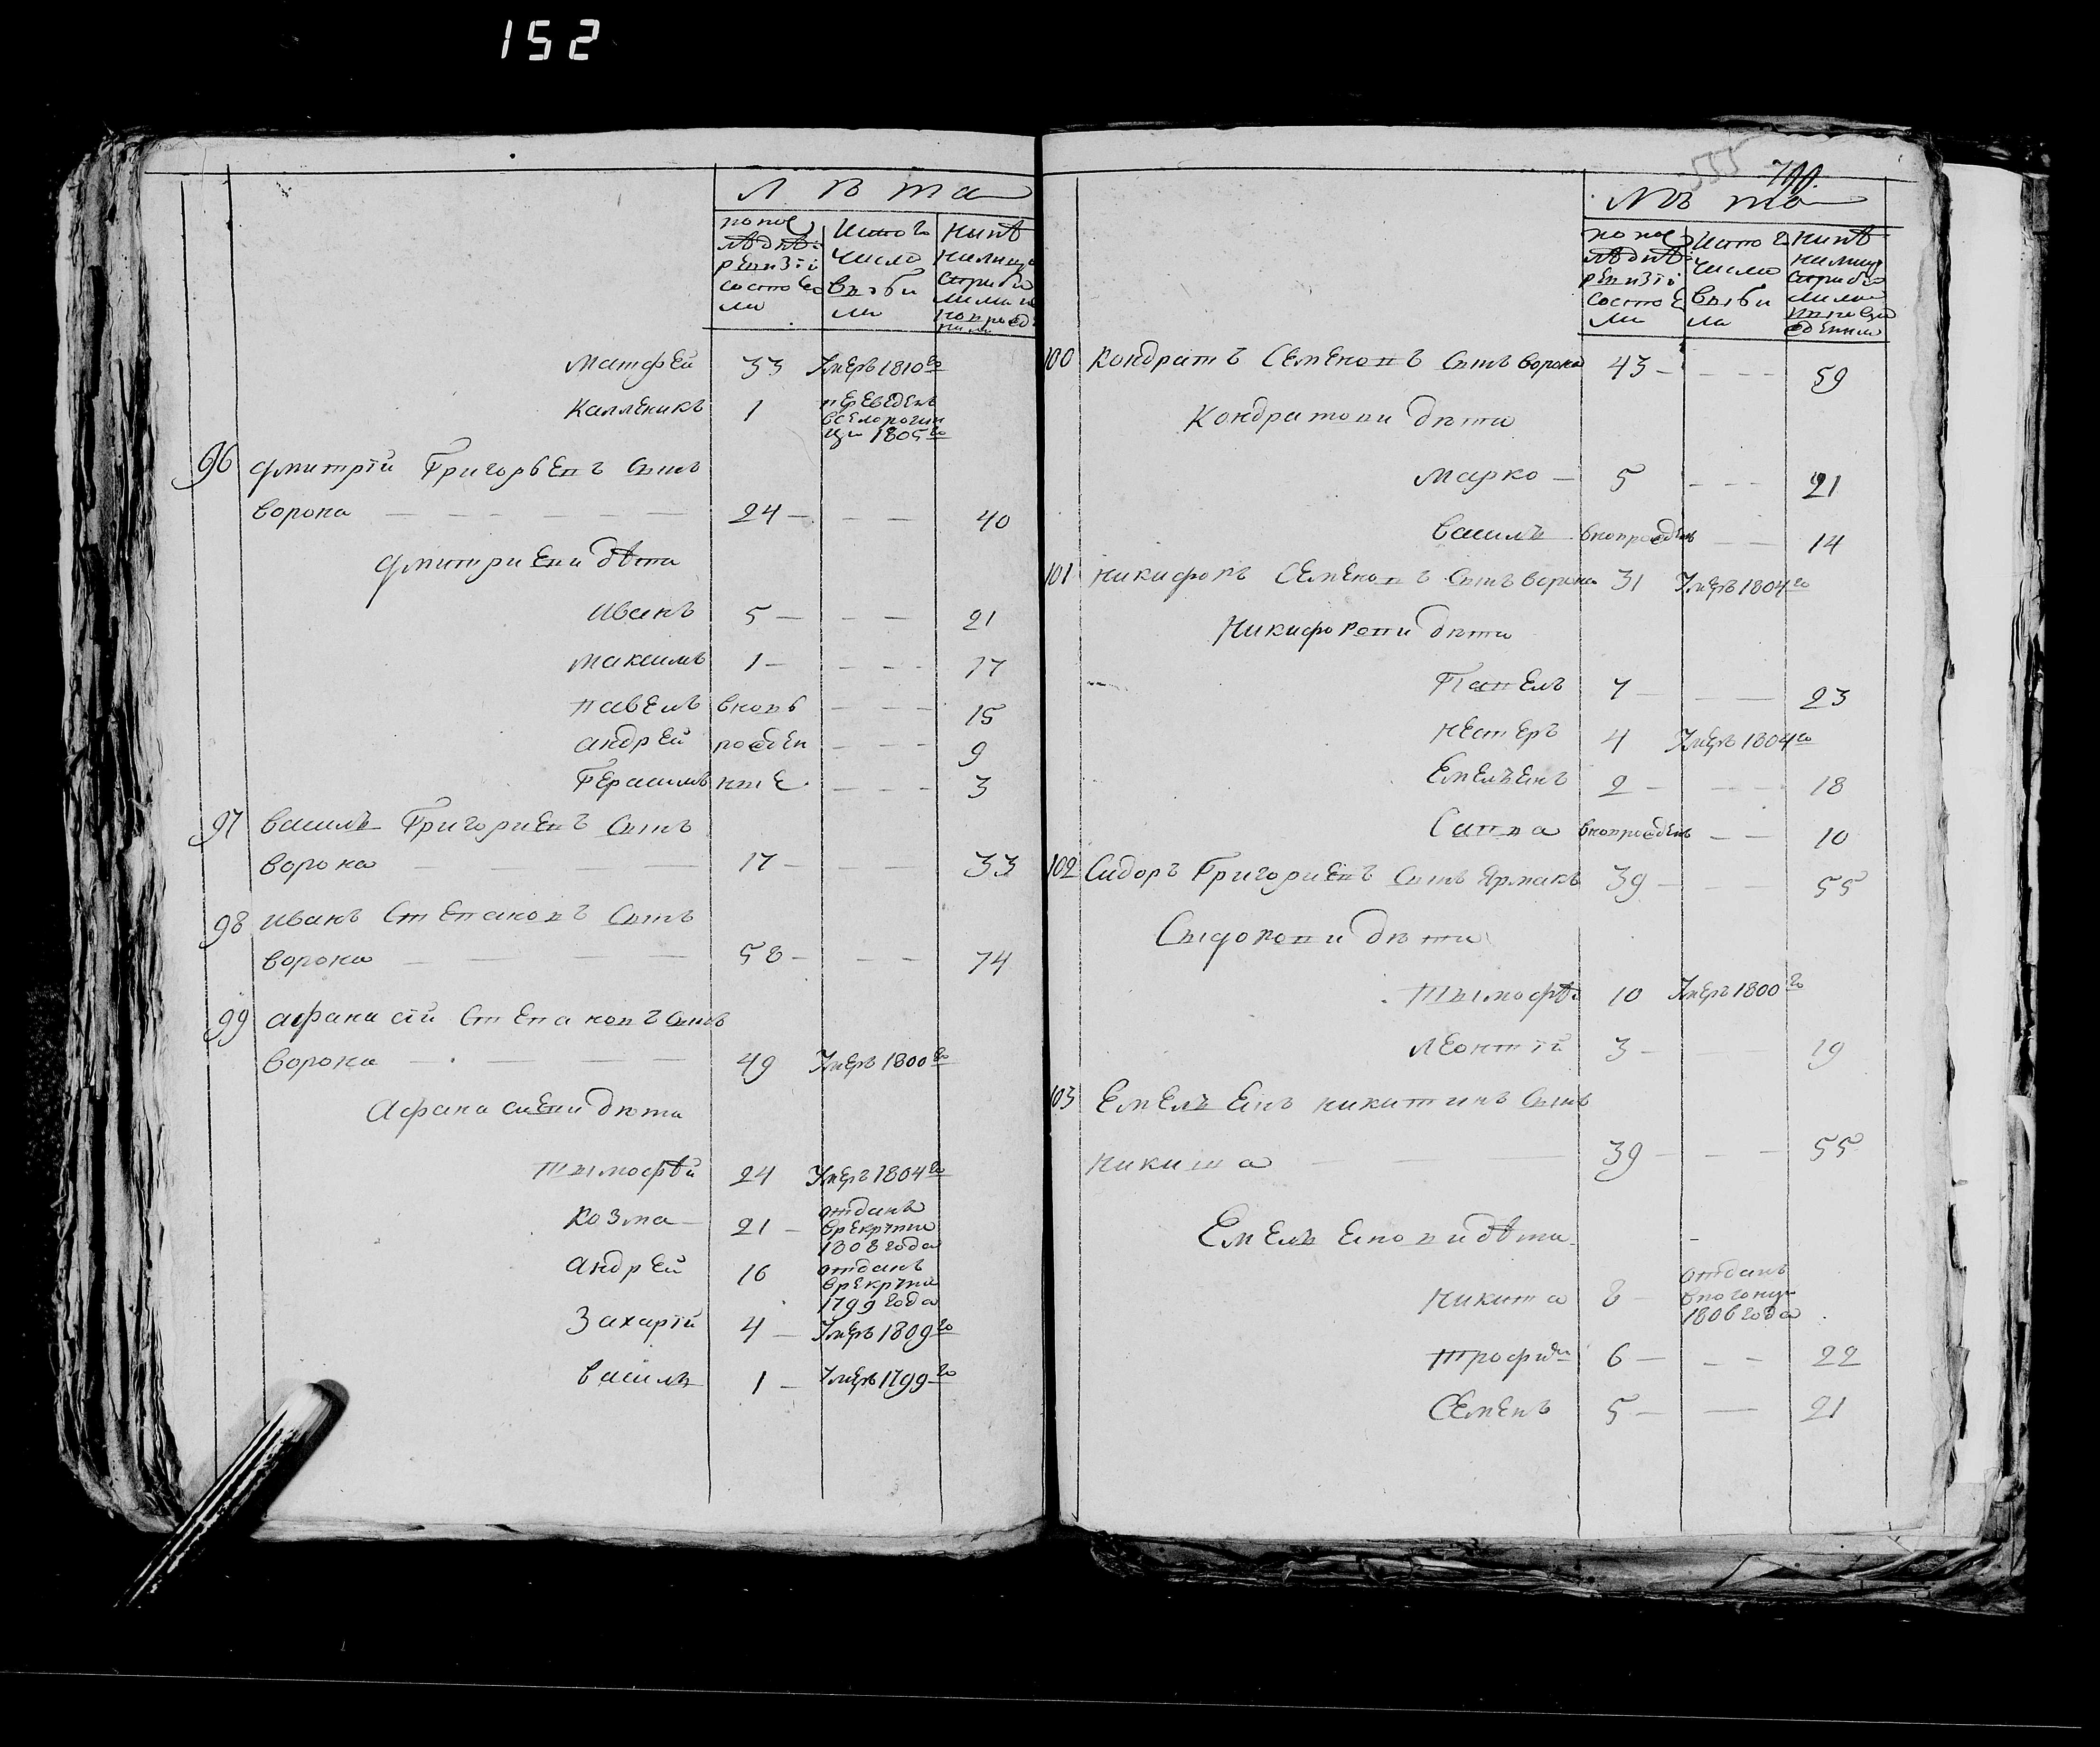 152
Лѣта
попос
лѣднѣ:
ревизіі
состояо
ли
Истого
число
выбы
ли
Нинѣ
налицо
Матфей 33 Умеръ 1810го
Калленикъ 1 переведенъ
1805го
96 Дмитрій Григорьевъ Сынъ
Ворона 24 — — — 40
Дмитриеви Дѣти
Иванъ 5 — — — 21
Максимъ 1 — — — 17
Павелъ вновь — — — 15
Андрей рожден — — — 9
Герасимъ ние — — — 3
97 Василь Григориевъ Сынъ
Ворона 17 — — — 33
98 Иванъ Степановъ Сынъ
Ворона 58 — — — 74
99 Афанасій Степановъ Сынъ
Ворона 49 Умеръ 1800го
Афанасиеви дѣти
Тымофѣй 24 Умеръ 1804го
Козма 21 — отданъ
врекруты
1808 года
Андрей 16 отданъ
врекруты
1799 года
Захарій 4 — Умеръ 1809го
Василь 1 — Умеръ 1799го
555
Лѣта
попос
лѣднѣ
ревизіі
состоя
ли
Истого
число
выбы
ли
Нинѣ
налицо
100 Кондратъ Семеновъ Сынъ Ворона 43 — — — 59
Кондратови дѣти
Марко — 5 — — — 21
Василь вноврожденъ — — 14
101 Никифоръ Семеновъ Сынъ Ворона 31 Умеръ 1804го
Никифорови дѣти
Павелъ 7 — — 23
Нестеръ 4 Умеръ 1804го
Емельянъ 2 — — — 18
Савва вноврожденъ — — 10
102 Сидоръ Григориевъ Сынъ Ярмакъ 39 — — — 55
Сыдорови дѣти
Тымофѣ: 10 Умеръ 1800го
Леонтій 3 — — 19
103 Емельянъ Никитинъ Сынъ
Никита 39 — — — 55
Емельянови дѣти
Никита 8 — отданъ
1806 года
Трофимъ 6 — — — 22
Семенъ 5 — — 21